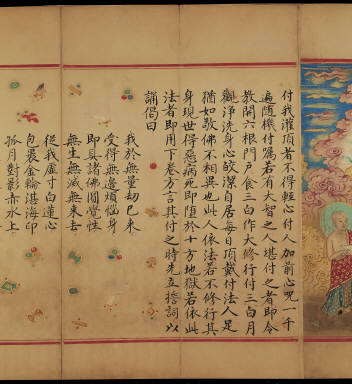 付我灌頂者不得輕心付人加前心咒一千
遍隨機付囑若有大智之人堪付之者即令
教閉六根門戶食三白作大修行付三白月
觀淨洗身心皎潔自居每日頂戴付法人足
猶如敬佛不相異也此人依法若不修行其
身現世得惡病死即墮於十方地獄若依此
法者即用下卷方言其付之時先立擔詞以
誦偈曰
我於無量劫已來
受得無邊煩惱身
即具諸佛圓覺性
無生無滅無來去
從我盧寸白蓮心
包裹金輪湛海印
孤月對影赤水上